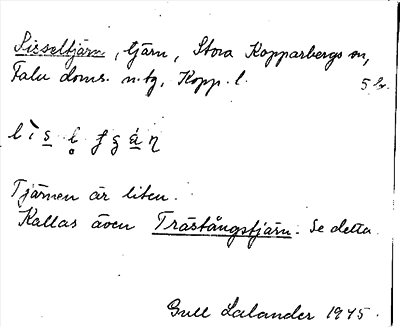 Pisseltjärn, tjärn, Stora Kopparbergs sn,
Falu doms. n. tg, Kopp. l.
Tjärnen är liten.
Kallas även Träståugstjärn. Se detta.
Gull Lalander 1945.